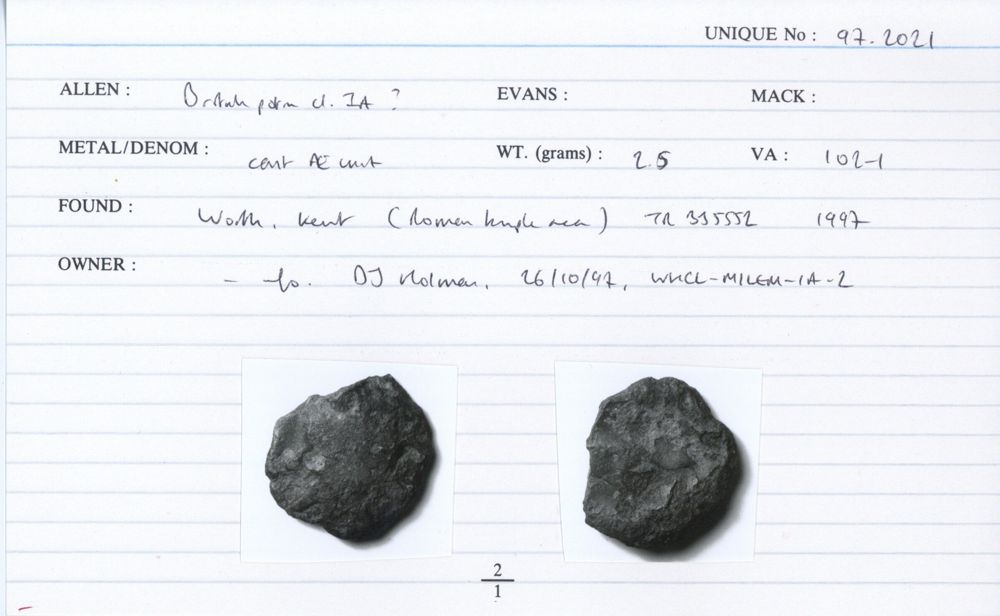 UNIQUE No : 97.2021
ALLEN : British potin cl. IA ? EVANS : MACK :
METAL/DENOM : cast AE unit WT. (grams) : 2.5 VA : 102-1
FOUND : Worth, Kent (Roman temple area) TR 335552 1997
OWNER : - info. DJ Holman, 26/10/97, 
2
1